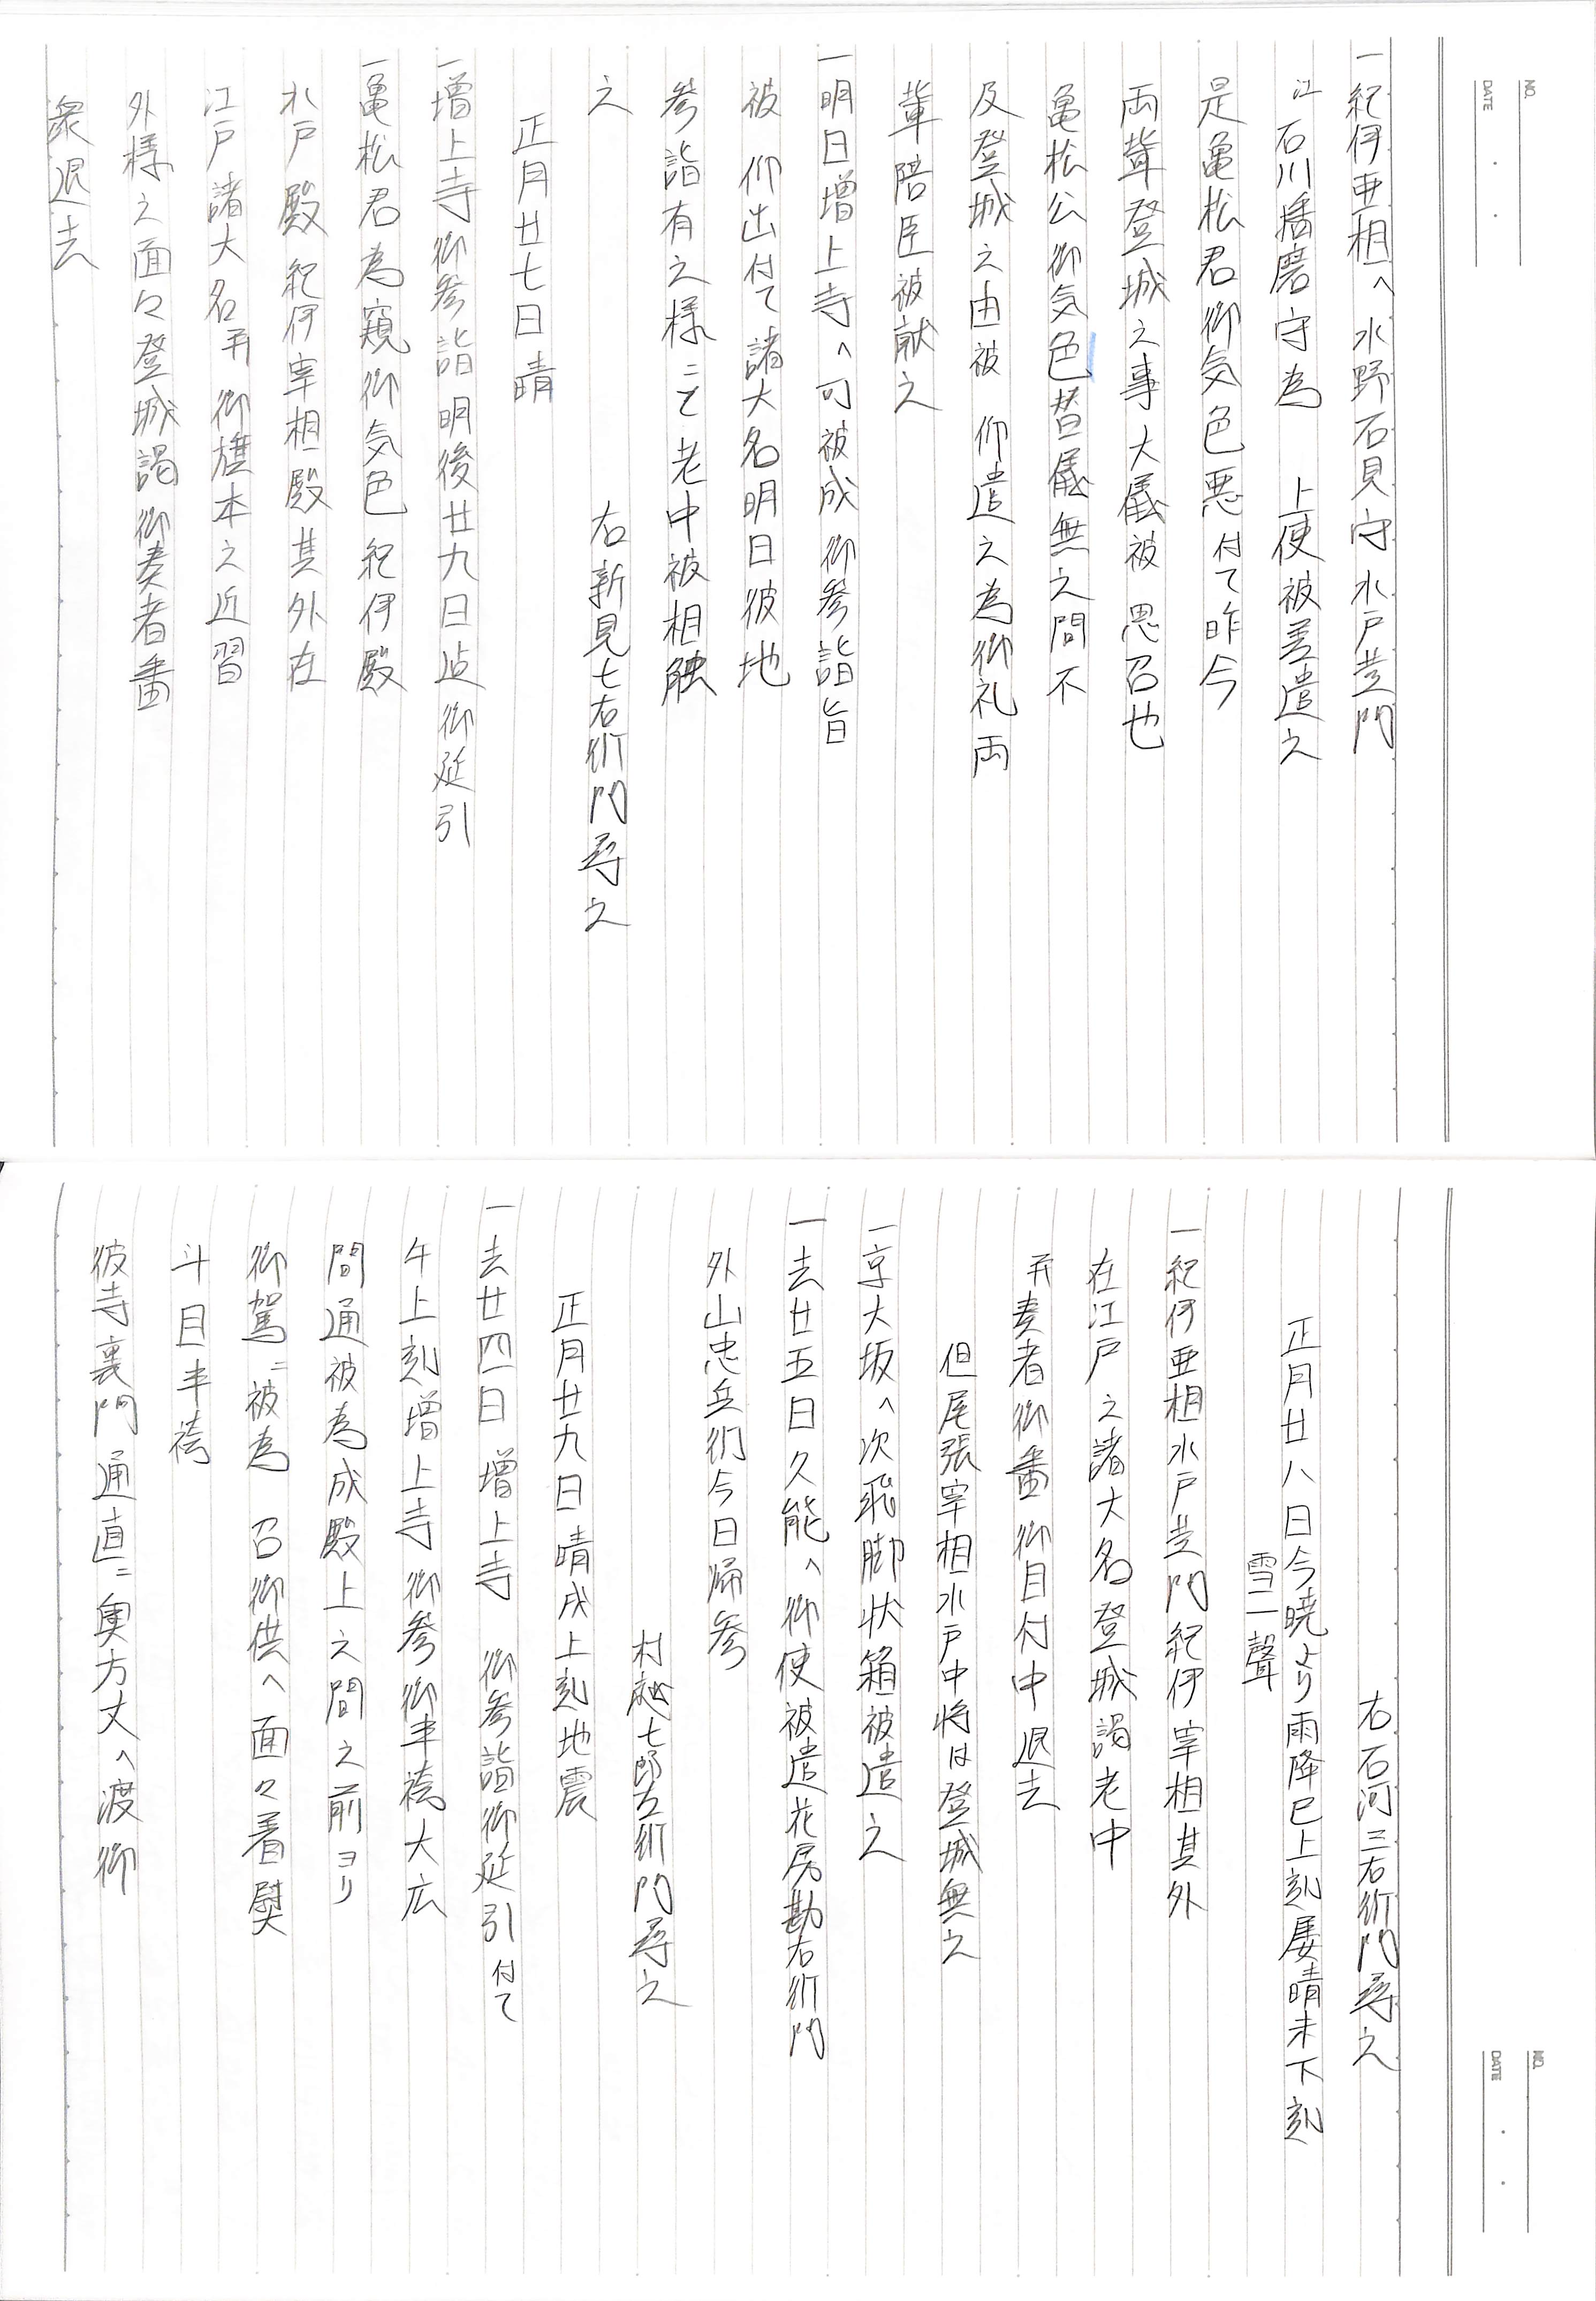 NO.
DATE
一紀伊亜相へ水野石見守水戸黄門
江石川播磨守為 上使被差遣之
是亀松君御気色悪付て昨今
両輩登城之事大儀被 思召也
亀松公御気色替儀無之間不
及登城之由被 仰遣之為御礼両
輩陪臣被献之
一明日増上寺へ可被成御参詣旨
被 仰出付て諸大名明日彼地
参詣有之様ニと老中被相触
之
右新見七右衛門尋之
正月廿七日晴
一増上寺御参詣明後廿九日迄御延引
一亀松君為窺御気色紀伊殿
水戸殿紀伊宰相殿其外在
江戸諸大名并御旗本之近習
外様之面々登城謁御奏者番
衆退去
NO.
DATE
右石河三右衛門尋之
正月廿八日今暁より雨降巳上刻属晴未下刻
雪二聲
一紀伊亜相水戸黄門紀伊宰相其外
在江戸之諸大名登城謁老中
并奏者御番御目付中退去
但尾張宰相水戸中将は登城無之
一京大坂へ次飛脚状箱被遣之
一去廿五日久能へ御使被遣花房勘右衛門
外山忠兵衛今日帰参
村越七郎左衛門尋之
正月廿九日晴戌上刻地震
一去廿四日増上寺 御参詣御延引付て
午上刻増上寺御参御半袴大広
間通被為成殿上之間之前ヨリ
御駕ニ被為 召御供へ面々着熨
斗目半袴
彼寺裏門通直ニ奥方丈へ渡御